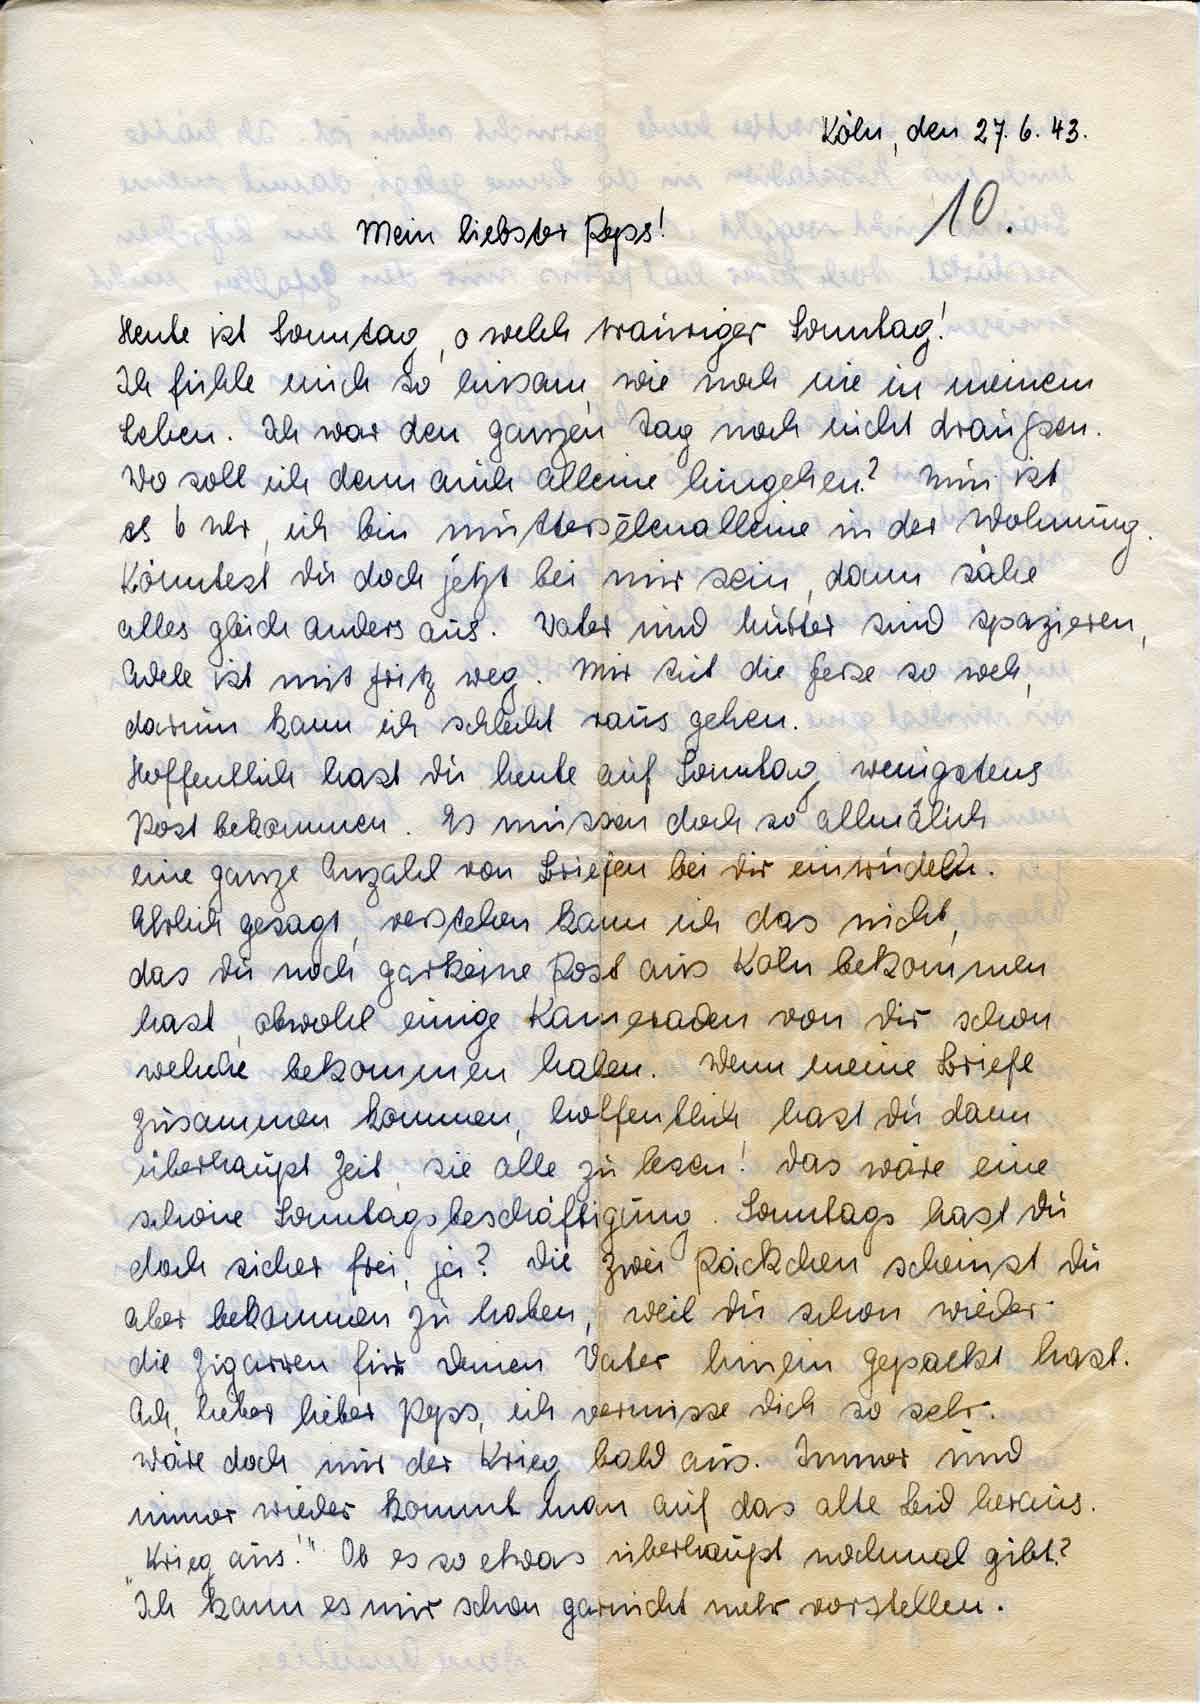 Köln, den 27. 6. 43.
10.
Mein liebster Peps!
Heute ist Sonntag, o welch trauriger Sonntag!
Ich fühle mich so einsam, wie noch nie in meinem
Leben. Ich war den ganzen Tag noch nicht draußen.
Wo soll ich denn auch alleine hingehen? Nun ist
es 6 Uhr, ich bin mutterseelenalleine in der Wohnung.
Könntest du doch jetzt bei mir sein, dann sähe
alles gleich anders aus. Vater und Mutter sind spazieren,
Adele ist mit Fritz weg. Mir tut die Ferse so weh,
darum kann ich schlecht raus gehen.
Hoffentlich hast du heute auf Sonntag wenigstens
Post bekommen. Es müssen doch so allmälich
eine ganze Anzahl von Briefen bei dir eintrudeln.
Ehrlich gesagt, verstehen kann ich das nicht,
das du noch garkeine Post aus Köln bekommen
hast, obwohl einige Kameraden von dir schon
welche bekommen haben. Wenn meine Briefe
zusammen kommen, hoffentlich hast du dann
überhaupt Zeit, sie alle zu lesen! Das wäre eine
schöne Sonntagsbeschäftigung. Sonntags hast du
doch sicher frei, ja? Die zwei Päckchen scheinst du
aber bekommen zu haben, weil du schon wieder
die Zigarren für deinen Vater hinein gepackt hast.
Ach, lieber lieber Peps, ich vermisse dich so sehr.
Wäre doch nur der Krieg bald aus. Immer und
immer wieder kommt man auf das alte Leid heraus.
"Krieg aus!" Ob es so etwas überhaupt nochmal gibt?
Ich kann es mir schon garnicht mehr vorstellen.